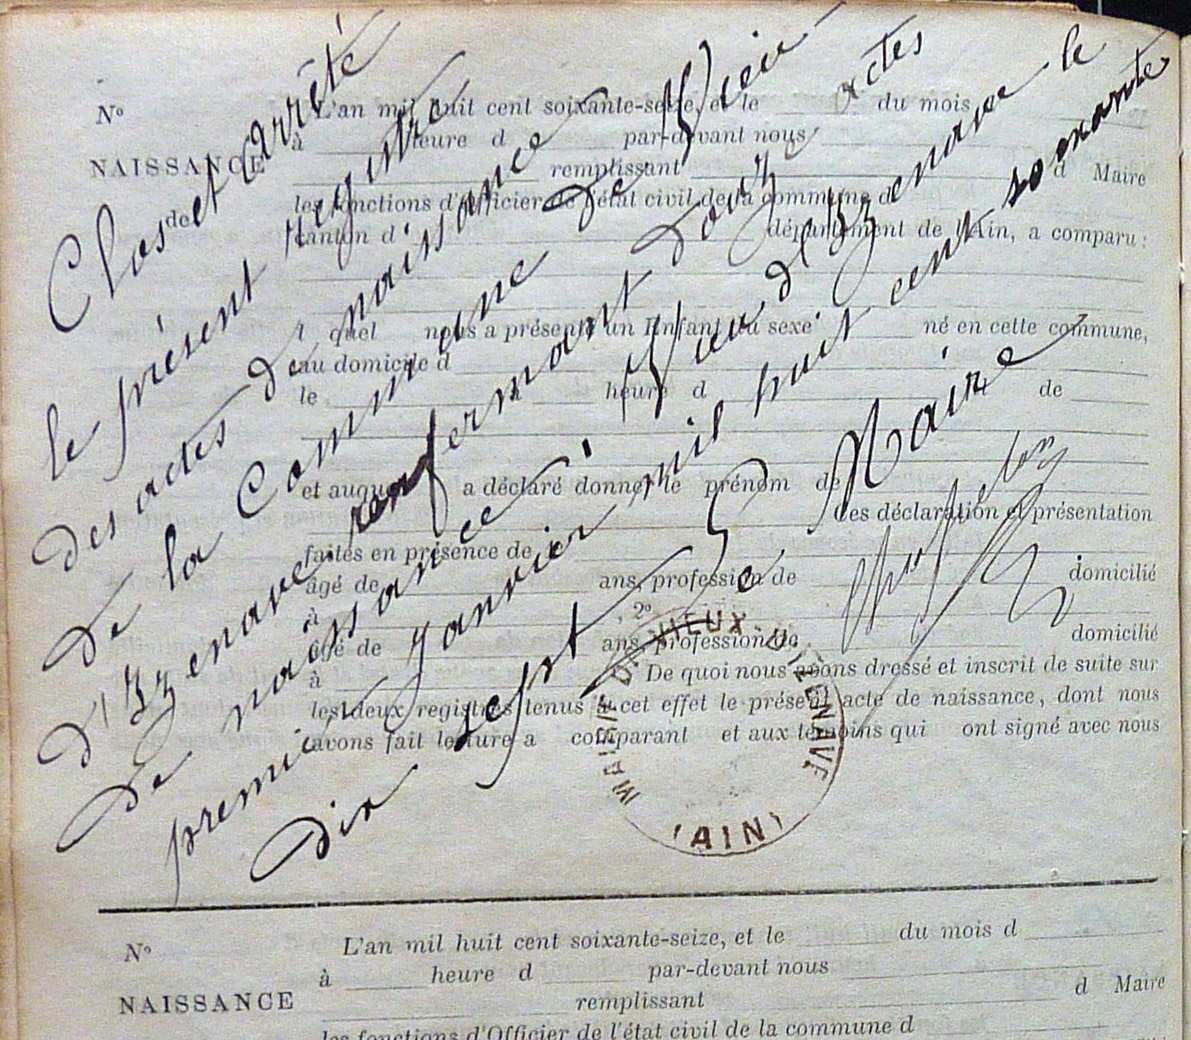 Clos et arrêté
le présent registre
des actes de naissance
de la Commune de Vieu
d'Izenave renfermant douze actes
de naissance. Vieu d'Izenave le
premier Janvier mil huit cent soixante
dix sept
Le Maire
N° L'an mil huit cent soixante-seize, et le du mois
à heure d par-devant nous
NAISSANCE remplissant d Maire
de les fonctions d'Officier de l'état civil de la commune d
canton d département de l'Ain, a comparu :
l quel nous a présenté un Enfant du sexe né en cette commune,
au domicile d
le à heure d de
et auquel a déclaré donner le prénom de
Ces déclaration et présentation
faites en présence de 1°
âgé de ans, profession de domicilié
à , 2°
âgé de ans, profession de domicilié
à De quoi nous avons dressé et inscrit de suite sur
les deux registres tenus à cet effet le présent acte de naissance, dont nous
avons fait lecture a comparant et aux témoins qui ont signé avec nous
MAIRIE DE VIEUX-D'IZENAVE
(AIN)
N° L'an mil huit cent soixante-seize, et le du mois d
à heure d par-devant nous
NAISSANCE remplissant d Maire
les fonctions d'Officier de l'état civil de la commune d